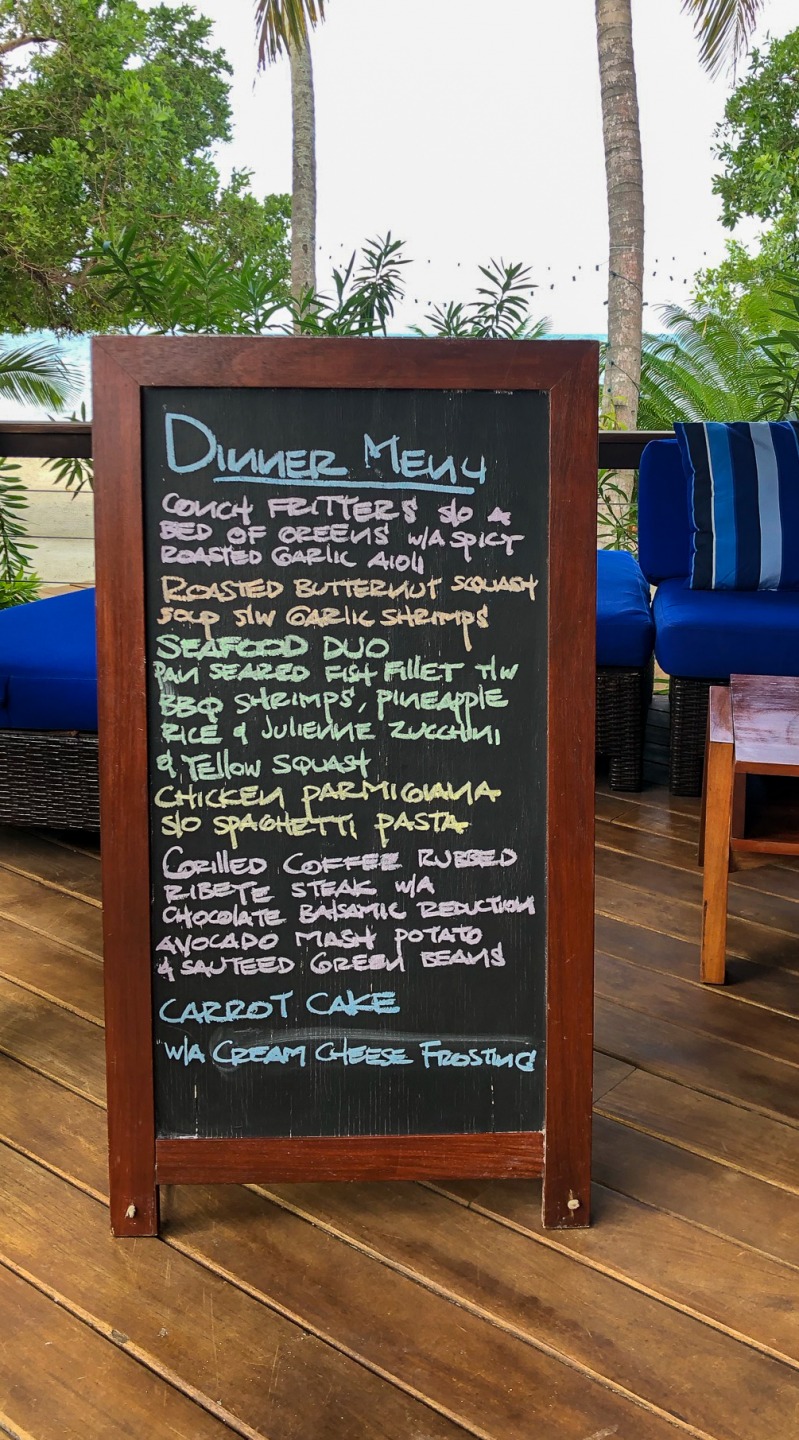 Dinner Menu
Conch Fritters s/o a
Bed of Greens w/a spicy
Roasted Garlic Aioli
Roasted Butternut Squash
soup s/w Garlic Shrimps
Seafood Duo
Pan Seared Fish Fillet t/w
BBQ Shrimps, Pineapple
Rice & Julienne Zucchini
& Yellow Squash
Chicken Parmigiana
s/o Spaghetti Pasta
Grilled Coffee Rubbed
Ribeye Steak w/a
Chocolate Balsamic Reduction
Avocado Mash Potato
& Sauteed Green Beans
Carrot Cake
w/a Cream Cheese Frosting